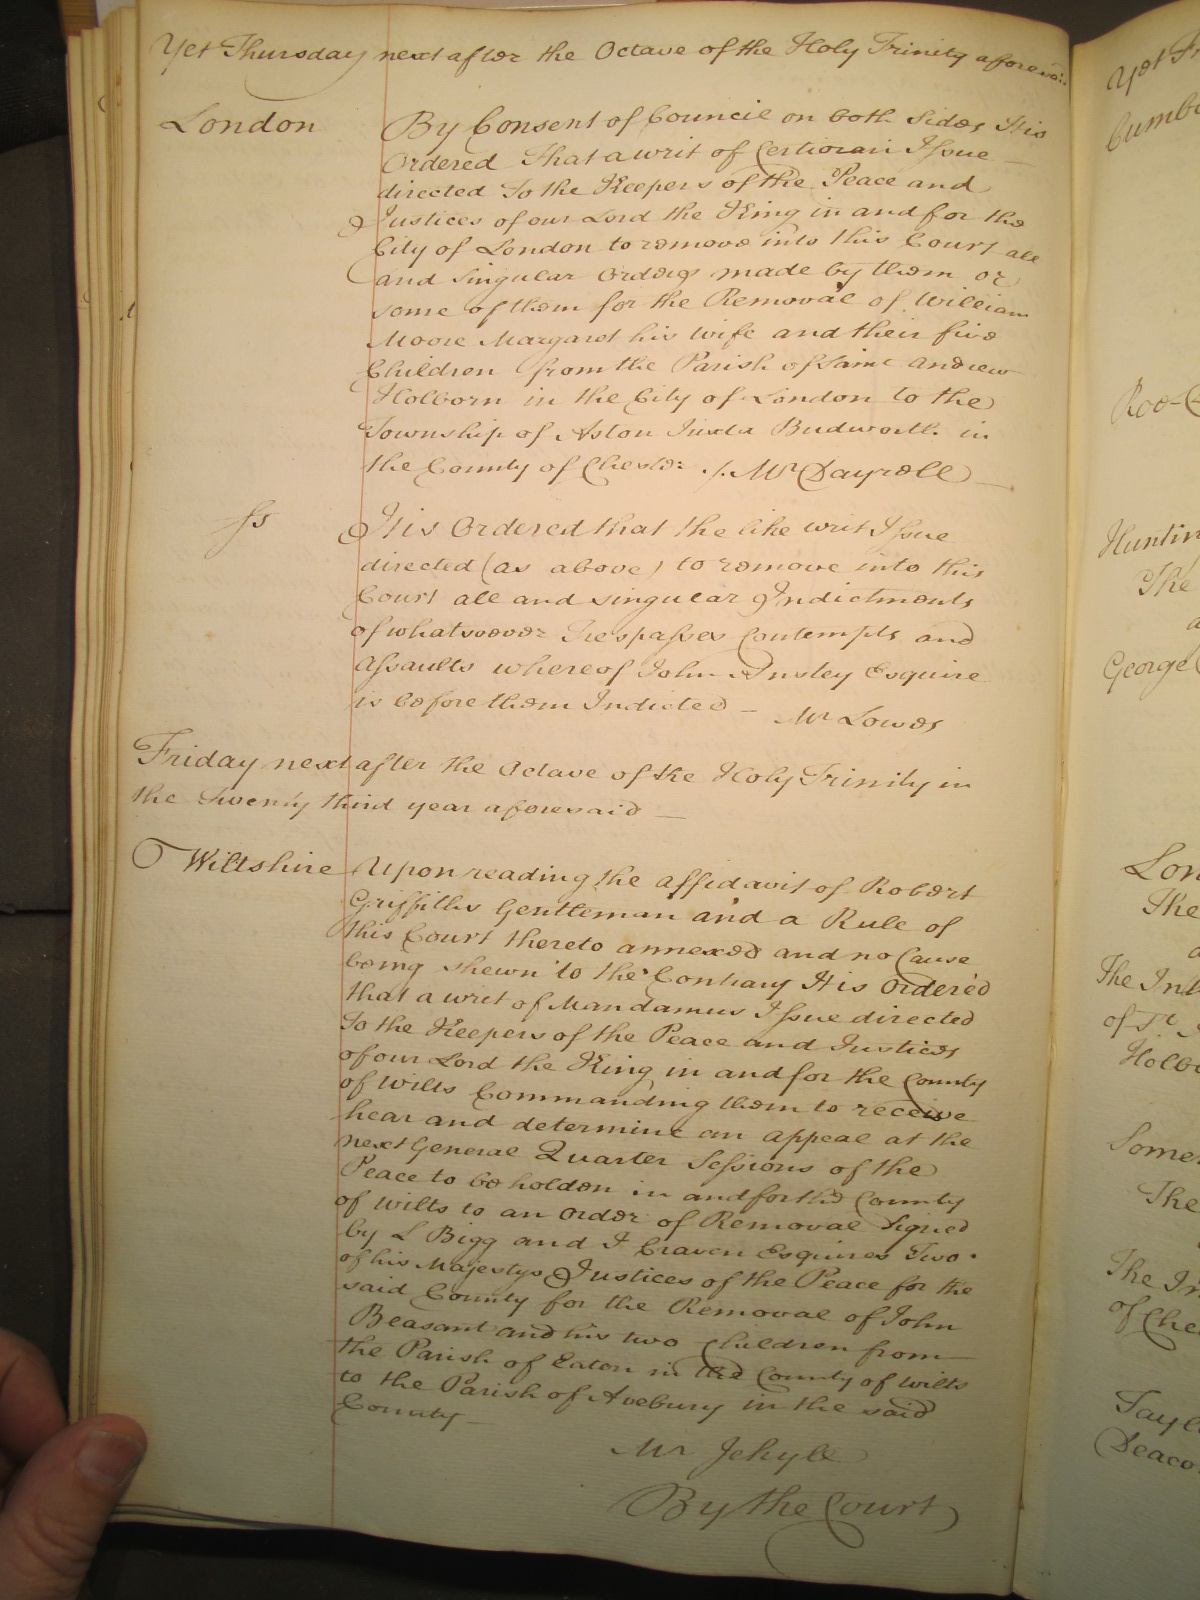 Yet Thursday next after the Octave of the Holy Trinity aforesaid
London By Consent of Council on both Sides It is
Ordered That a writ of Certiorari Issue
directed To the Keepers of the Peace and
Justices of our Lord the King in and for the
City of London to remove into this Court all
and singular Orders made by them or
some of them for the Removal of William
Moore Margaret his Wife and their five
Children from the Parish of Saint Andrew
Holborn in the City of London to the
Township of Aston Juxta Budworth in
the County of Chester /. Mr Dayrell
ss It is Ordered that the like writ Issue
directed (as above) to remove into this
Court all and singular Indictments
of whatsoever Trespasses Contempts and
Assaults whereof John Ansley Esquire
is before them Indicted – Mr Lowes
Friday next after the Octave of the Holy Trinity in
the Twenty third year aforesaid
Wiltshire Upon reading the affidavit of Robert
Griffiths Gentleman and a Rule of
this Court thereto annexed and no Cause
being shewn to the Contrary It is Ordered
that a writ of Mandamus Issue directed
To the Keepers of the Peace and Justices
of our Lord the King in and for the County
of Wilts Commanding them to receive
hear and determine an appeal at the
next General Quarter Sessions of the
Peace to be holden in and for the County
of Wilts to an Order of Removal Signed
by L Bigg and J Craven Esquires Two
of his Majestys Justices of the Peace for the
said County for the Removal of John
Beasant and his two Children from
the Parish of Eaton in the County of Wilts
to the Parish of Avebury in the said
County
Mr Jekyll
By the Court
Huntin
The
George
Lon
The
The Inh
of St
Holbo
Somer
The
The In
of Che
Tayl
Deaco